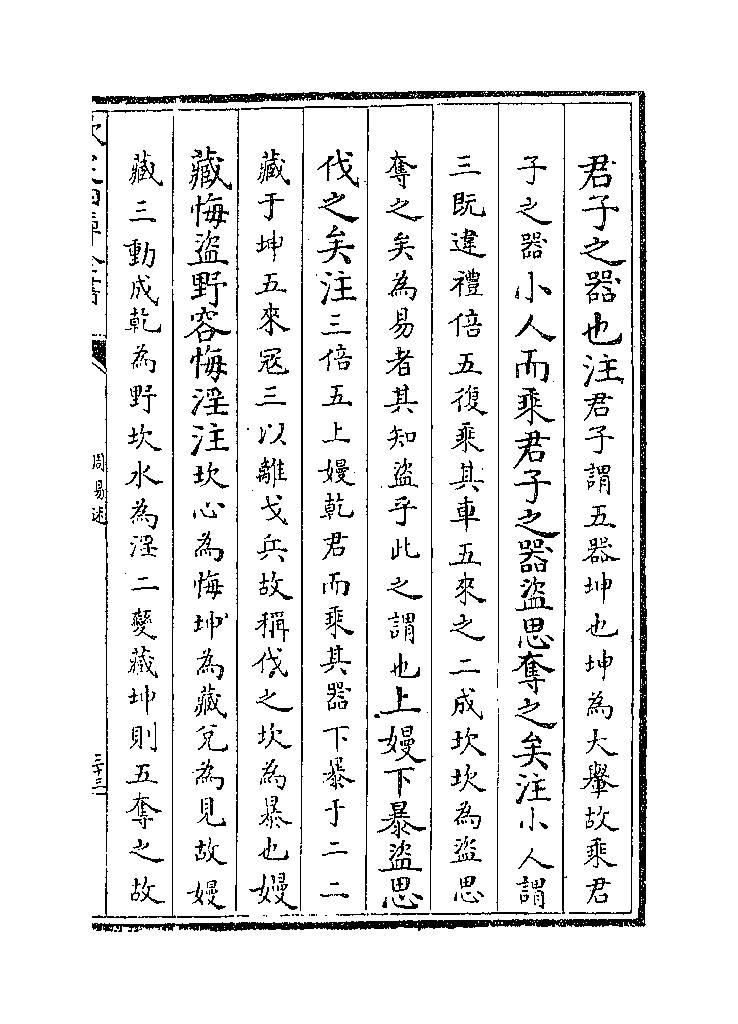 君子之器也注君子謂五器坤也坤為大轝故乘君
子之器小人而乘君子之器盜思奪之矣注小人謂
三既違禮倍五復乘其車五來之二成坎坎為盜思
奪之矣為易者其知盜乎此之謂也上嫚下暴盜思
伐之矣注三倍五上嫚乾君而乘其器下暴于二二
藏于坤五來寇三以離戈兵故稱伐之坎為暴也嫚
藏悔盜野容悔淫注坎心為悔坤為藏兌為見故嫚
藏三動成乾為野坎水為淫二變藏坤則五奪之故
周易述
三十三